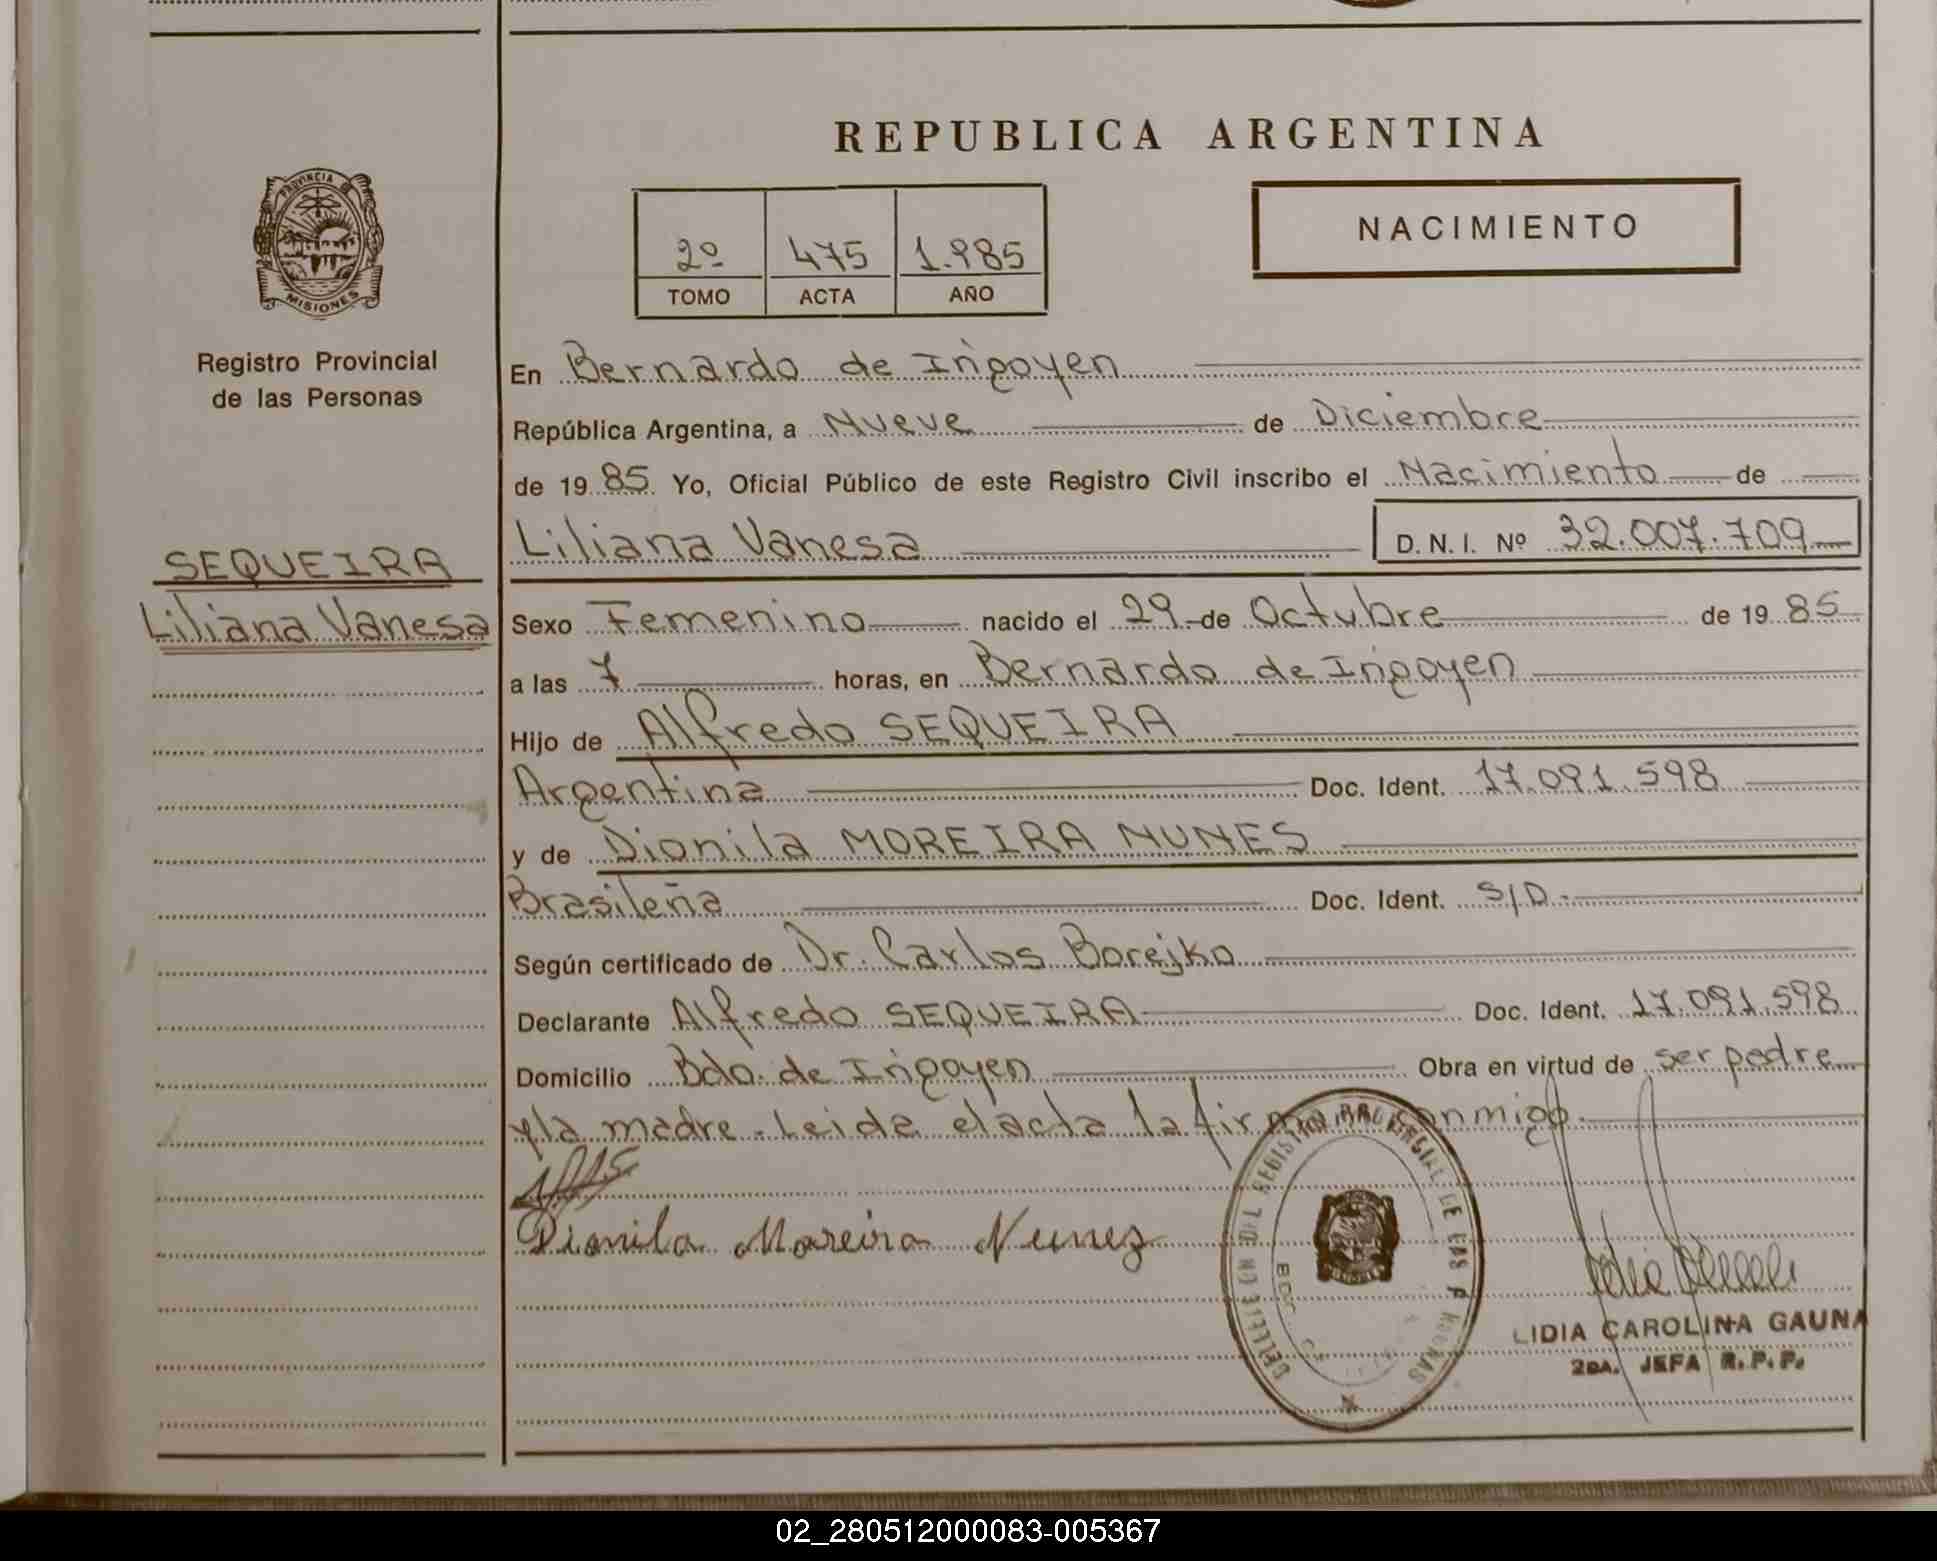 REPUBLICA ARGENTINA
PROVINCIA DE
MISIONES
Registro Provincial
de las Personas
SEQUEIRA
Liliana Vanesa
2º 475 1.985
TOMO ACTA AÑO
NACIMIENTO
En Bernardo de Irigoyen
República Argentina, a Nueve de Diciembre
de 1985 Yo, Oficial Público de este Registro Civil inscribo el Nacimiento de
Liliana Vanesa D. N. I. Nº 32.007.709
Sexo Femenino nacido el 29 de Octubre de 1985
a las 7 horas, en Bernardo de Irigoyen
Hijo de Alfredo SEQUEIRA
Argentina Doc. Ident. 17.091.598
y de Dionila MOREIRA NUNES
Brasileña Doc. Ident. S/D.
Según certificado de Dr. Carlos Borejko
Declarante Alfredo SEQUEIRA Doc. Ident. 17.091.598
Domicilio Bdo. de Irigoyen Obra en virtud de ser padre
y la madre. Leida el acta la firman conmigo.
Dionila Moreira Nunez
DELEGACION DEL REGISTRO PROVINCIAL DE LAS PERSONAS
LIDIA CAROLINA GAUNA
2DA. JEFA R. P. P.
02_280512000083-005367